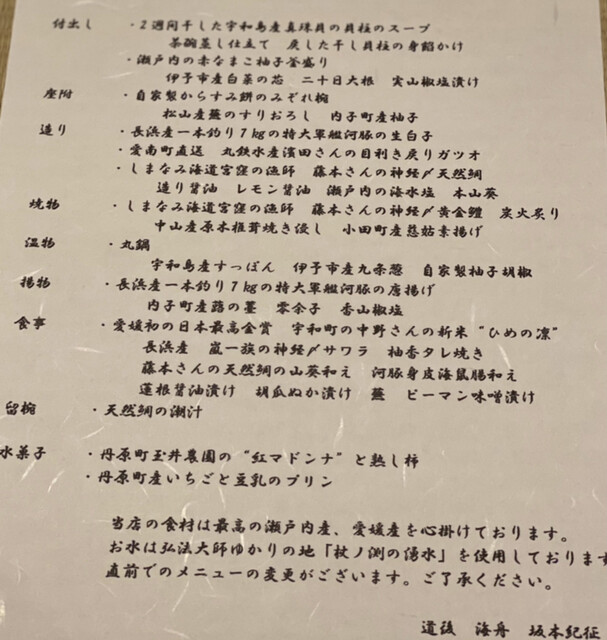 付出し ・2週間干した宇和島産真珠貝の貝柱のスープ
茶碗蒸し仕立て 戻した干し貝柱の身餡かけ
・瀬戸内の赤なまこ柚子釜盛り
伊予市産白菜の芯 二十日大根 実山椒塩漬け
座附 ・自家製からすみ餅のみぞれ椀
松山産蕪のすりおろし 内子町産柚子
造り ・長浜産一本釣り7kgの特大軍艦河豚の生白子
・愛南町直送 丸鉄水産濱田さんの目利き戻りガツオ
・しまなみ海道宮窪の漁師 藤本さんの神経〆天然鯛
造り醤油 レモン醤油 瀬戸内の海水塩 本山葵
焼物 ・しまなみ海道宮窪の漁師 藤本さんの神経〆黄金鱧 炭火炙り
中山産原木椎茸焼き浸し 小田町産慈姑素揚げ
温物 ・丸鍋
宇和島産すっぽん 伊予市産九条葱 自家製柚子胡椒
揚物 ・長浜産一本釣り7kgの特大軍艦河豚の唐揚げ
内子町産蕗の薹 零余子 香山椒塩
食事 ・愛媛初の日本最高金賞 宇和町の中野さんの新米 "ひめの凛"
長浜産 嵐一族の神経〆サワラ 柚香タレ焼き
藤本さんの天然鯛の山葵和え 河豚身皮海鼠腸和え
蓮根醤油漬け 胡瓜ぬか漬け 蕪 ピーマン味噌漬け
留椀 ・天然鯛の潮汁
水菓子 ・丹原町玉井農園の"紅マドンナ"と熟し柿
・丹原町産いちごと豆乳のプリン
当店の食材は最高の瀬戸内産、愛媛産を心掛けております。
お水は弘法大師ゆかりの地「杖ノ渕の湧水」を使用しております
直前でのメニューの変更がございます。ご了承ください。
道後 海舟 坂本紀征